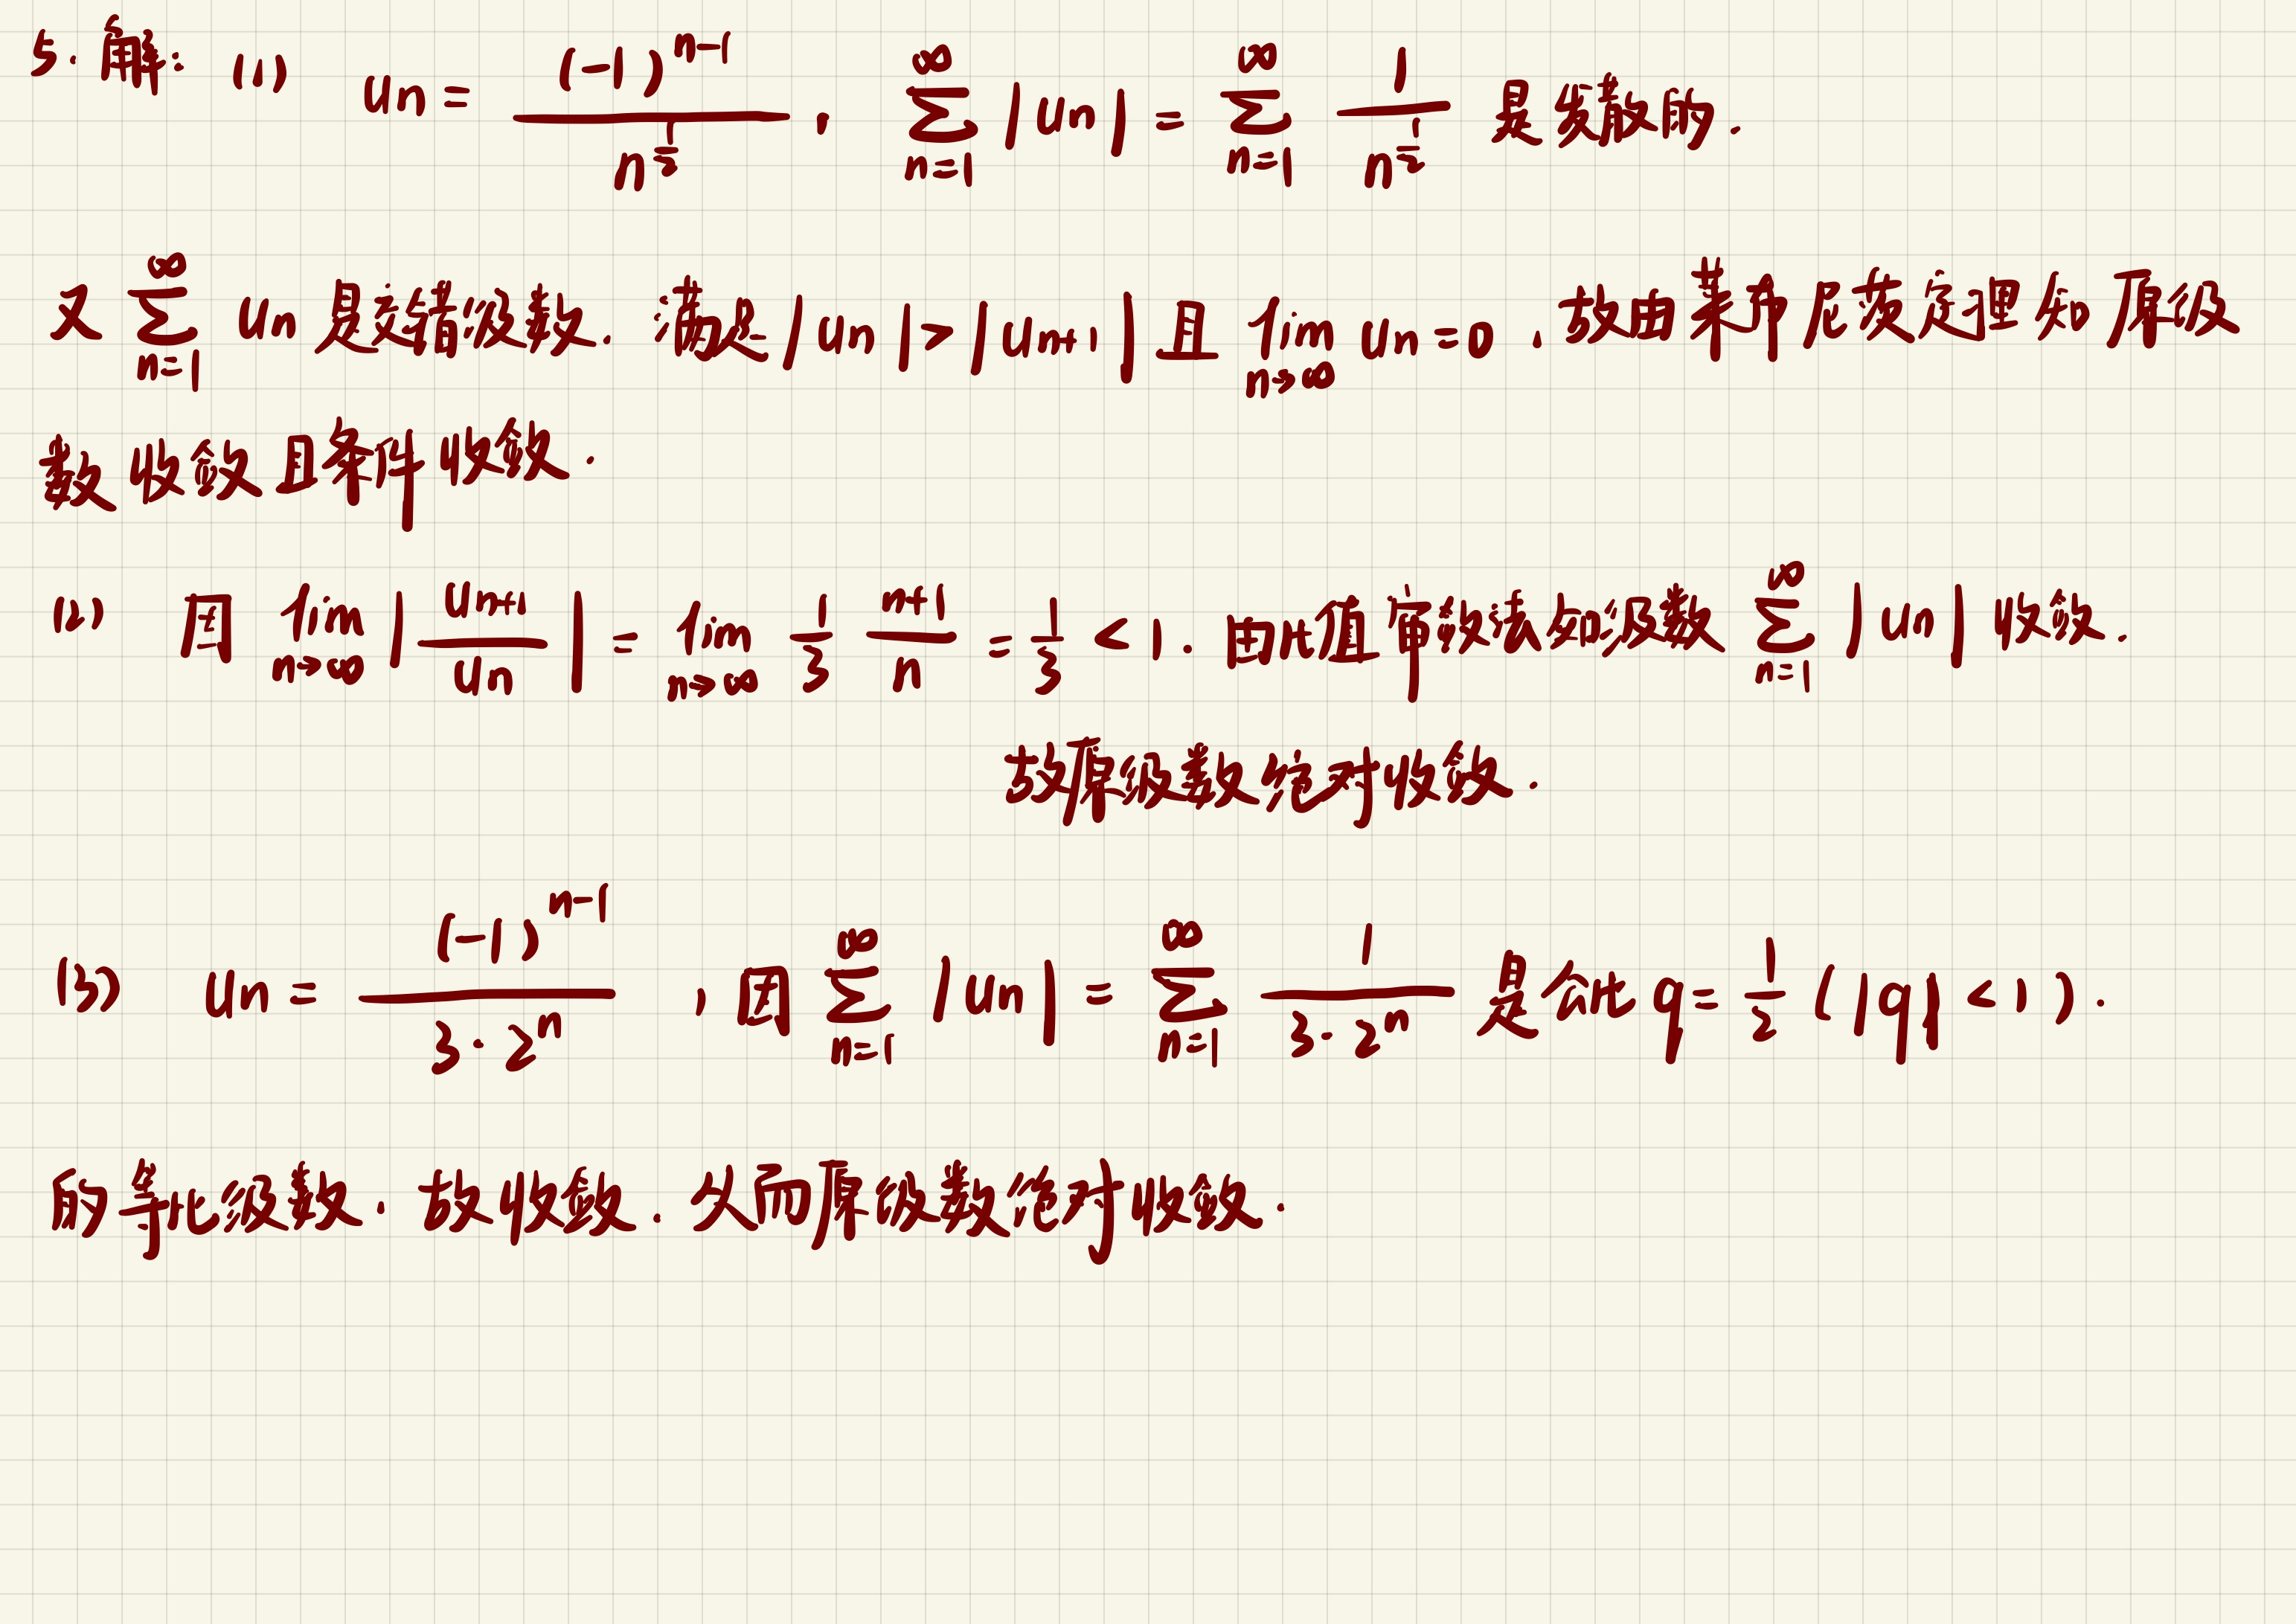 5. 解: (1) un = (-1)^{n-1} / n^{1/2}, ∑_{n=1}^{∞} |un| = ∑_{n=1}^{∞} 1/n^{1/2} 是发散的.
又 ∑_{n=1}^{∞} un 是交错级数. 满足 |un| > |un+1| 且 lim_{n→∞} un = 0. 故由莱布尼茨定理知原级
数收敛且条件收敛.
(2) 因 lim_{n→∞} |un+1 / un| = lim_{n→∞} 1/3 (n+1)/n = 1/3 < 1. 由比值审敛法知级数 ∑_{n=1}^{∞} |un| 收敛.
故原级数绝对收敛.
(3) un = (-1)^{n-1} / 3·2^n, 因 ∑_{n=1}^{∞} |un| = ∑_{n=1}^{∞} 1 / 3·2^n 是公比 q = 1/2 (|q| < 1).
的等比级数. 故收敛. 从而原级数绝对收敛.